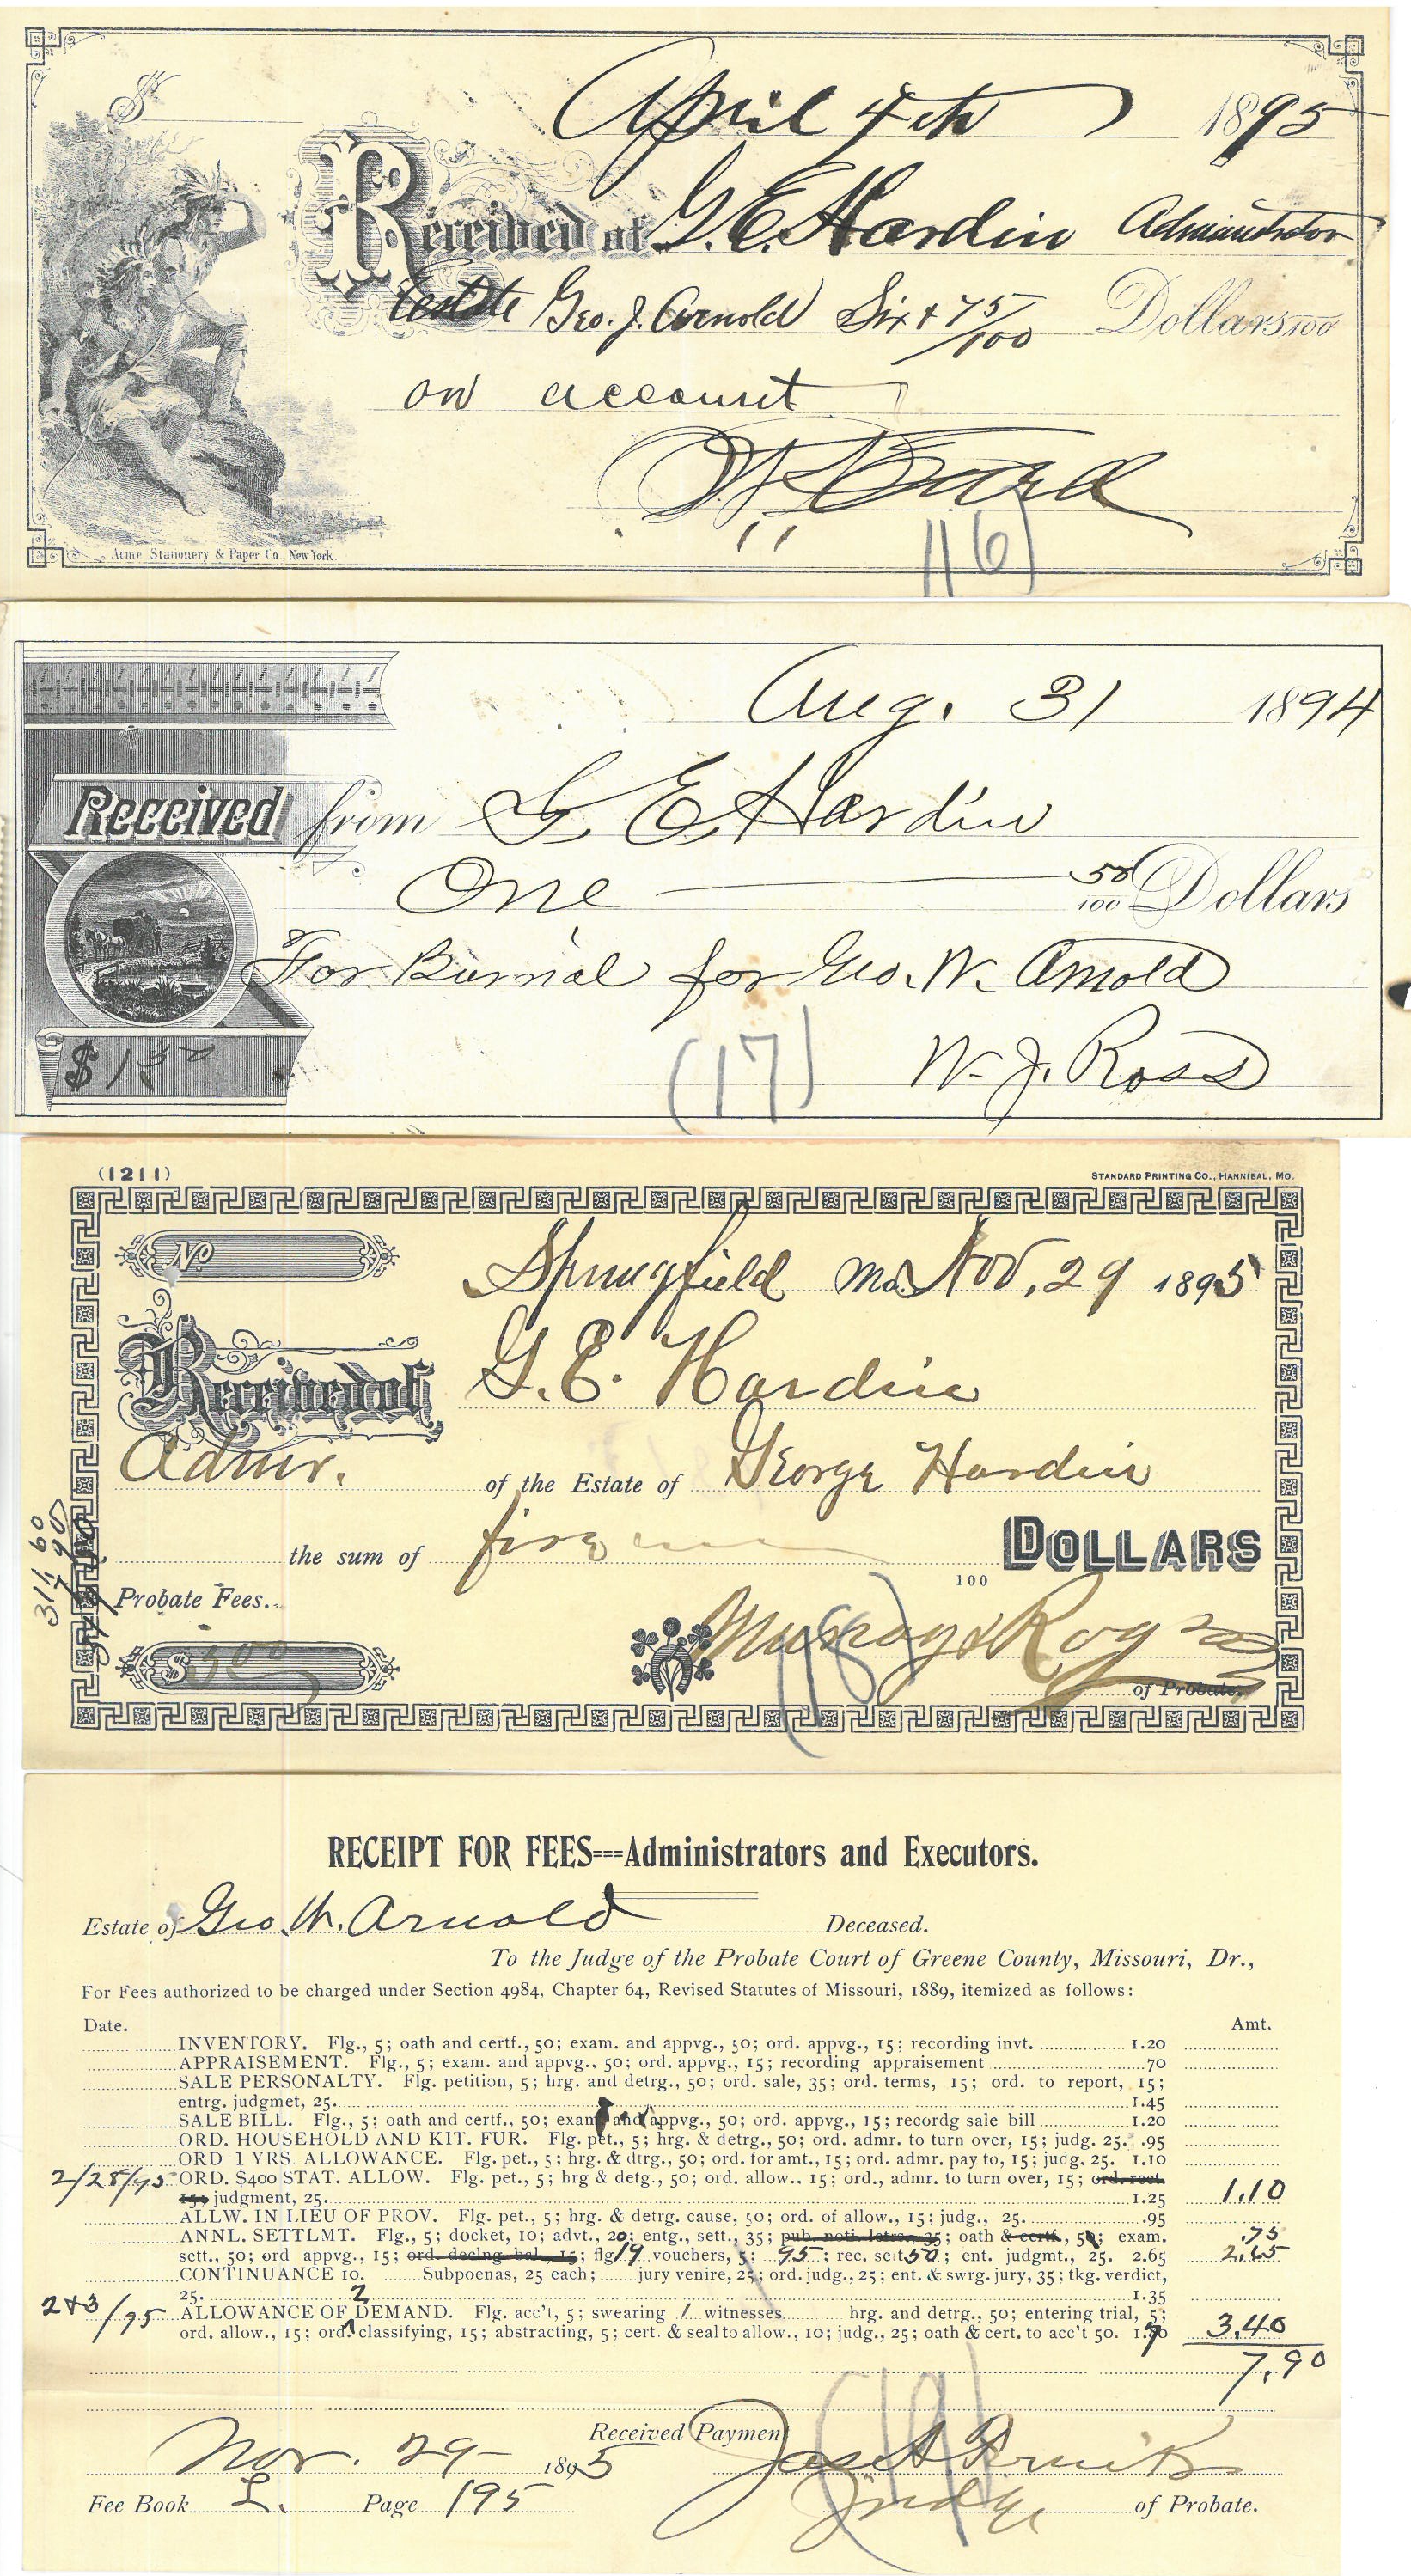 $ April 4th 1895
Received of G. E. Hardin Administrator
Estate Geo. J. Arnold Six + 75/100 Dollars 100
on account
Acme Stationery & Paper Co., New York.
116)
Aug. 31 1894
Received from G. E. Hardin
One 50/100 Dollars
For Burial for Geo. W. Arnold
$ 1.50
(17)
W. J. Ross
(1211)
STANDARD PRINTING CO., HANNIBAL, MO.
No Springfield Mo. Nov. 29 1895
Received of G. E. Hardin
Admr. of the Estate of George Hardin
the sum of five 100 DOLLARS
Probate Fees.
311.60
7.90
$ 500
(18)
of Probate.
RECEIPT FOR FEES---Administrators and Executors.
Estate of Geo. W. Arnold Deceased.
To the Judge of the Probate Court of Greene County, Missouri, Dr.,
For Fees authorized to be charged under Section 4984, Chapter 64, Revised Statutes of Missouri, 1889, itemized as follows:
Date. Amt.
INVENTORY. Flg., 5; oath and certf., 50; exam. and appvg., 50; ord. appvg., 15; recording invt. 1.20
APPRAISEMENT. Flg., 5; exam. and appvg., 50; ord. appvg., 15; recording appraisement 70
SALE PERSONALTY. Flg. petition, 5; hrg. and detrg., 50; ord. sale, 35; ord. terms, 15; ord. to report, 15;
entrg. judgmet, 25. 1.45
SALE BILL. Flg., 5; oath and certf., 50; exam and appvg., 50; ord. appvg., 15; recordg sale bill 1.20
ORD. HOUSEHOLD AND KIT. FUR. Flg. pet., 5; hrg. & detrg., 50; ord. admr. to turn over, 15; judg. 25. .95
ORD 1 YRS ALLOWANCE. Flg. pet., 5; hrg. & dtrg., 50; ord. for amt., 15; ord. admr. pay to, 15; judg. 25. 1.10
2/28/95 ORD. $400 STAT. ALLOW. Flg. pet., 5; hrg & detg., 50; ord. allow., 15; ord., admr. to turn over, 15; ord. rect.
15; judgment, 25. 1.25 1.10
ALLW. IN LIEU OF PROV. Flg. pet., 5; hrg. & detrg. cause, 50; ord. of allow., 15; judg., 25. .95
ANNL. SETTLMT. Flg., 5; docket, 10; advt., 20; entg., sett., 35; pub. noti. letrs., 35; oath & certf., 50; exam. .75
sett., 50; ord appvg., 15; ord. declng bal., 15; flg 19 vouchers, 5; 95; rec. sett 50; ent. judgmt., 25. 2.65 2.65
CONTINUANCE 10. Subpoenas, 25 each; jury venire, 25; ord. judg., 25; ent. & swrg. jury, 35; tkg. verdict,
25. 1.35
2&3/95 ALLOWANCE OF 2 DEMAND. Flg. acc't, 5; swearing 1 witnesses hrg. and detrg., 50; entering trial, 5;
ord. allow., 15; ord. classifying, 15; abstracting, 5; cert. & seal to allow., 10; judg., 25; oath & cert. to acc't 50. 3.40
7.90
(19)
Received Payment
Nov. 29 1895
Judge of Probate.
Fee Book L. Page 195